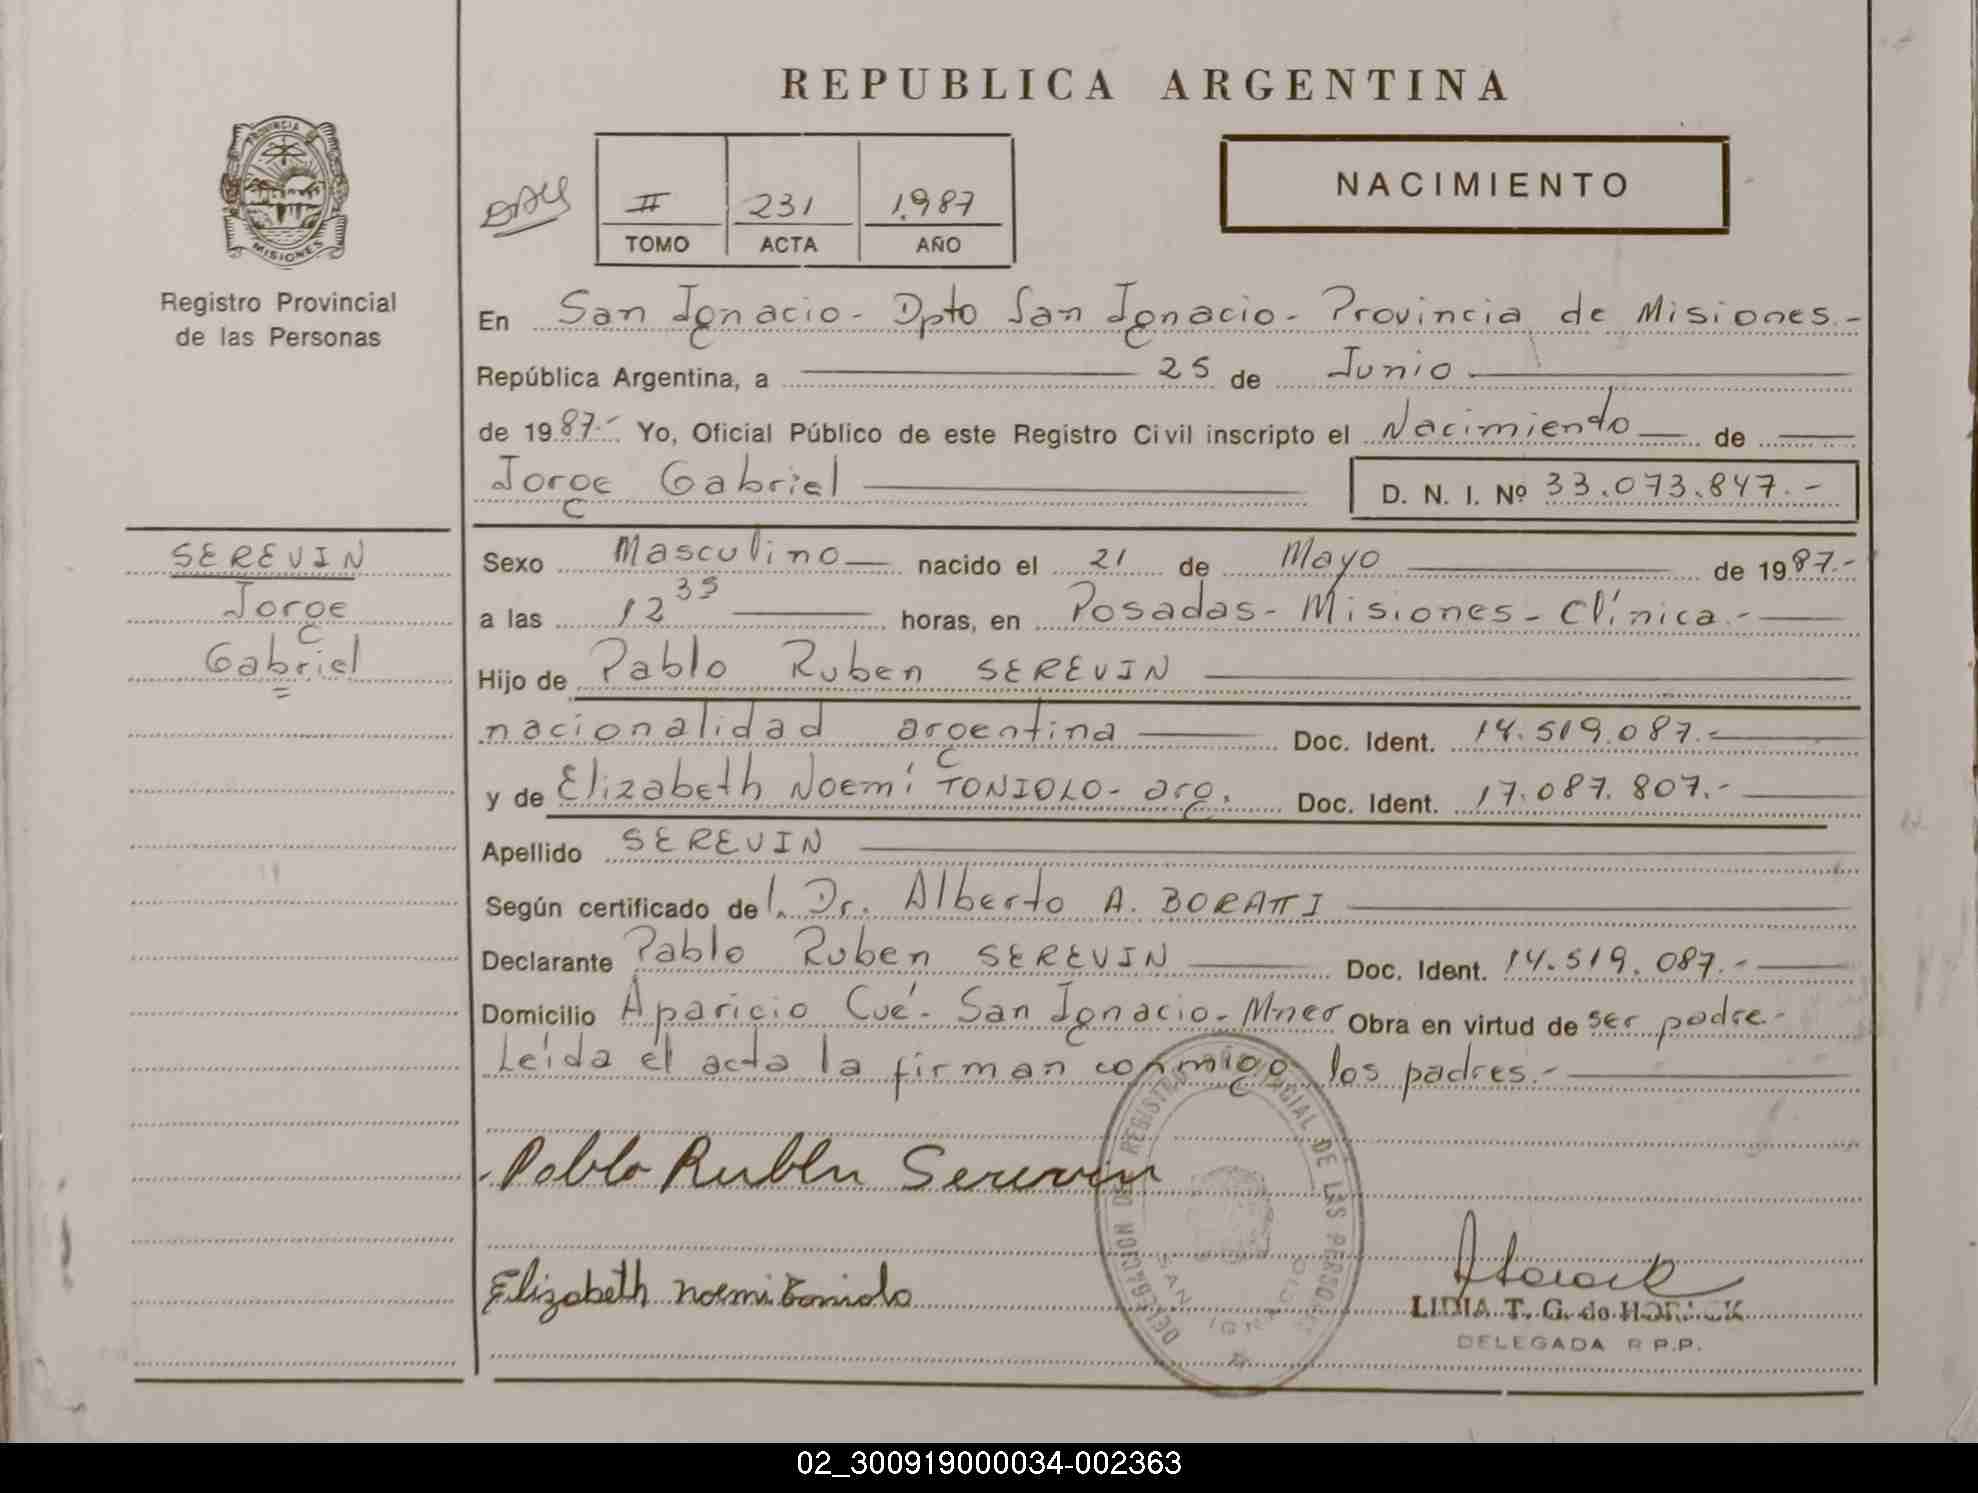 REPUBLICA ARGENTINA
PROVINCIA DE
MISIONES
Registro Provincial
de las Personas
II 231 1.987
TOMO ACTA AÑO
NACIMIENTO
En San Ignacio - Dpto San Ignacio - Provincia de Misiones.-
República Argentina, a 25 de Junio
de 1987.- Yo, Oficial Público de este Registro Civil inscripto el Nacimiento de
Jorge Gabriel D. N. I. Nº 33.073.847.-
SEREVIN
Jorge
Gabriel
Sexo Masculino nacido el 21 de Mayo de 1987.-
a las 12 35 horas, en Posadas - Misiones - Clínica.-
Hijo de Pablo Ruben SEREVIN
nacionalidad argentina Doc. Ident. 14.519.087.-
y de Elizabeth Noemí TONIOLO - arg. Doc. Ident. 17.087.807.-
Apellido SEREVIN
Según certificado del Dr. Alberto A. BORATTI
Declarante Pablo Ruben SEREVIN Doc. Ident. 14.519.087.-
Domicilio Aparicio Cué - San Ignacio - Mnes Obra en virtud de ser padre.-
Leída el acta la firman conmigo los padres.-
Pablo Ruben Serevin
Elizabeth Noemi Toniolo
DELEGACION DEL REGISTRO PROVINCIAL DE LAS PERSONAS
SAN IGNACIO
LIDIA T. G. de
DELEGADA R.P.P.
02_300919000034-002363